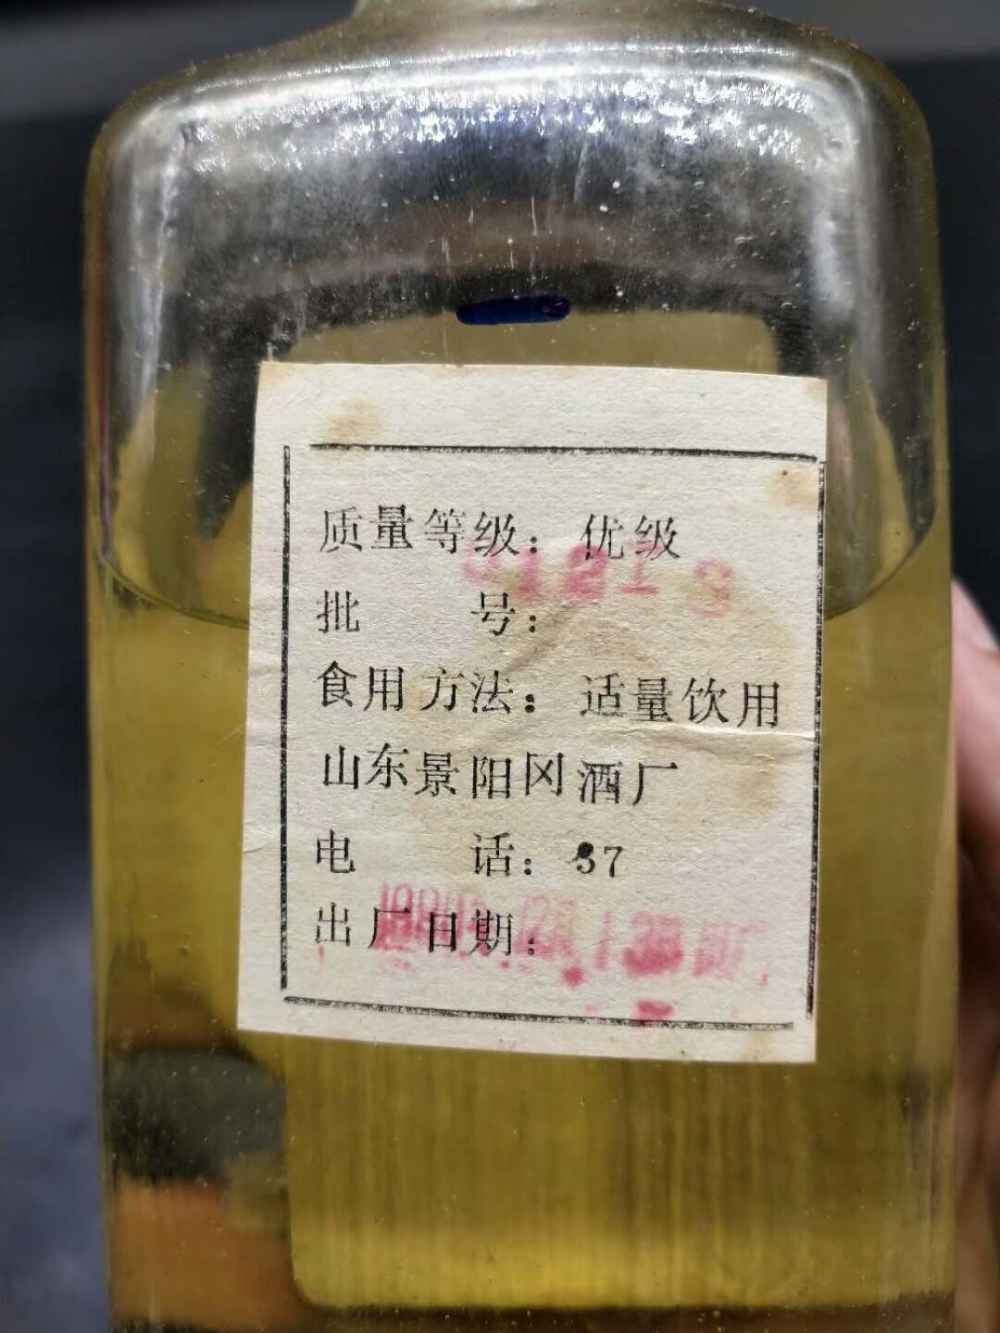 质量等级：优级
批 号：
食用方法：适量饮用
山东景阳冈酒厂
电 话：37
出厂日期：